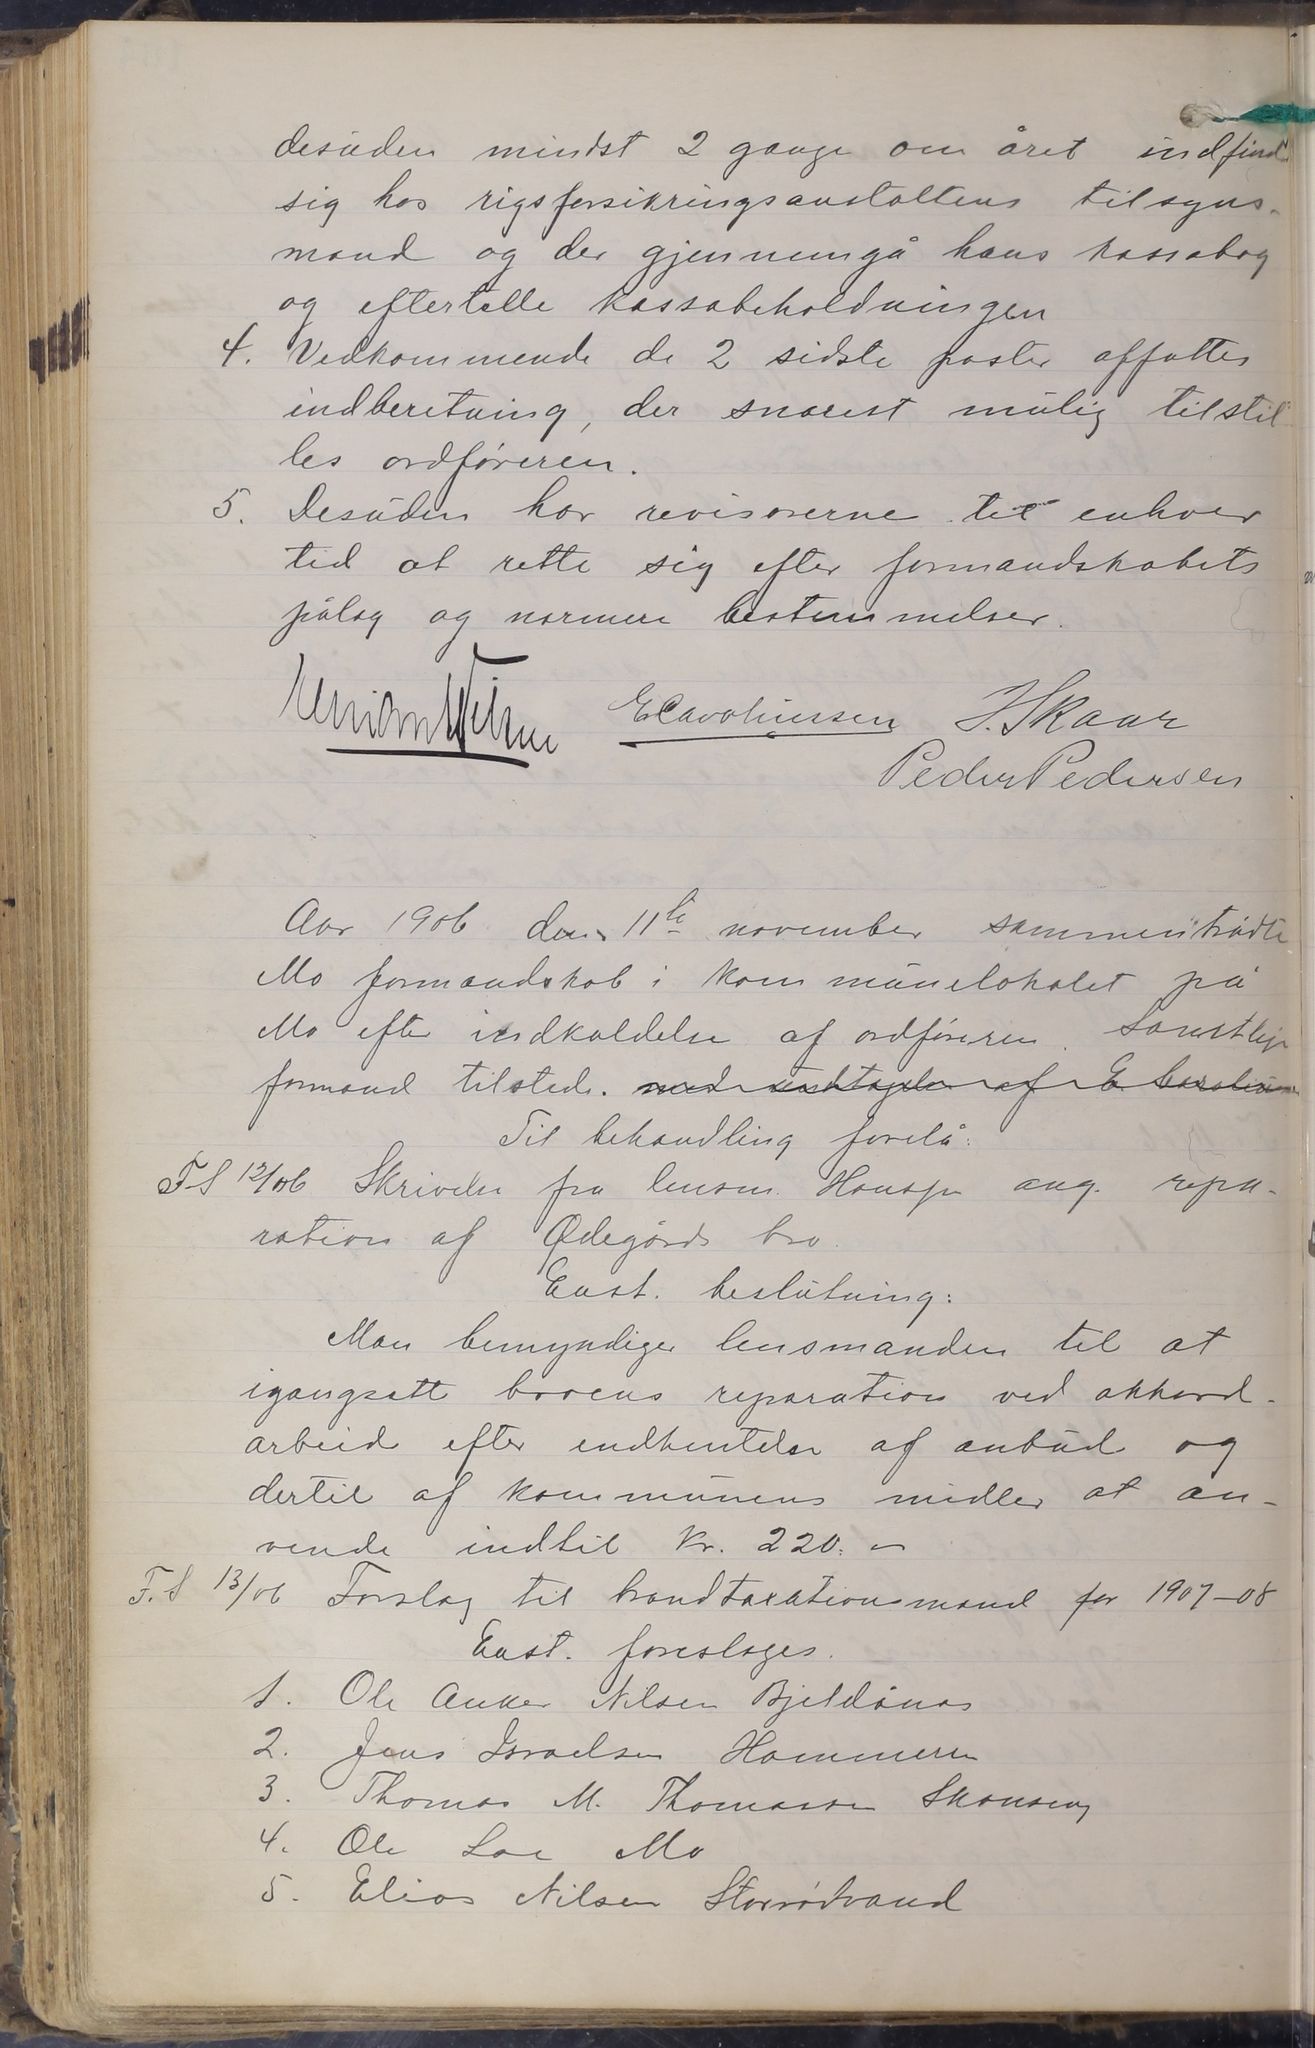 desuden mindst 2 gange om året indfinde
sig hos rigsforsikringsanstaltens tilsyns-
mand og der gjennemgå hans kassabog
og eftertelle kassabeholdningen
4. Vedkommende de 2 sidste poster affattes
indberetning, der snarest mulig tilstil-
les ordføreren.
5. Desuden har revisorerne til enhver
tid at rette sig efter formandskabets
pålæg og nærmere bestemmelser.
E Carolinssen J. Skaar
Peder Pedersen
Aar 1906 den 11te november sammentrådte
Mo formandskab i kommunelokalet på
Mo efter indkaldelse af ordføreren. Samtlige
formænd tilstede. med undtagelse af E Carolinssen
Til behandling forelå:
F.S 12/06 Skrivelse fra lensm. Hansen ang. repa-
ration af Ødegårds bro.
Enst. beslutning:
Man bemyndiger lensmanden til at
igangsætte broens reparation ved akkord-
arbeid efter indhentelse af anbud og
dertil af kommunens midler at an-
vende indtil kr. 220.-
F.S 13/06 Forslag til brandtaxationsmænd for 1907-08
Enst. foreslages.
1. Ole Anker Nilsen Bjeldånæs
2. Jens Israelsen Hammeren
3. Thomas M. Thomassen Skonseng
4. Ole Mo
5. Elias Nilsen Storrødvand